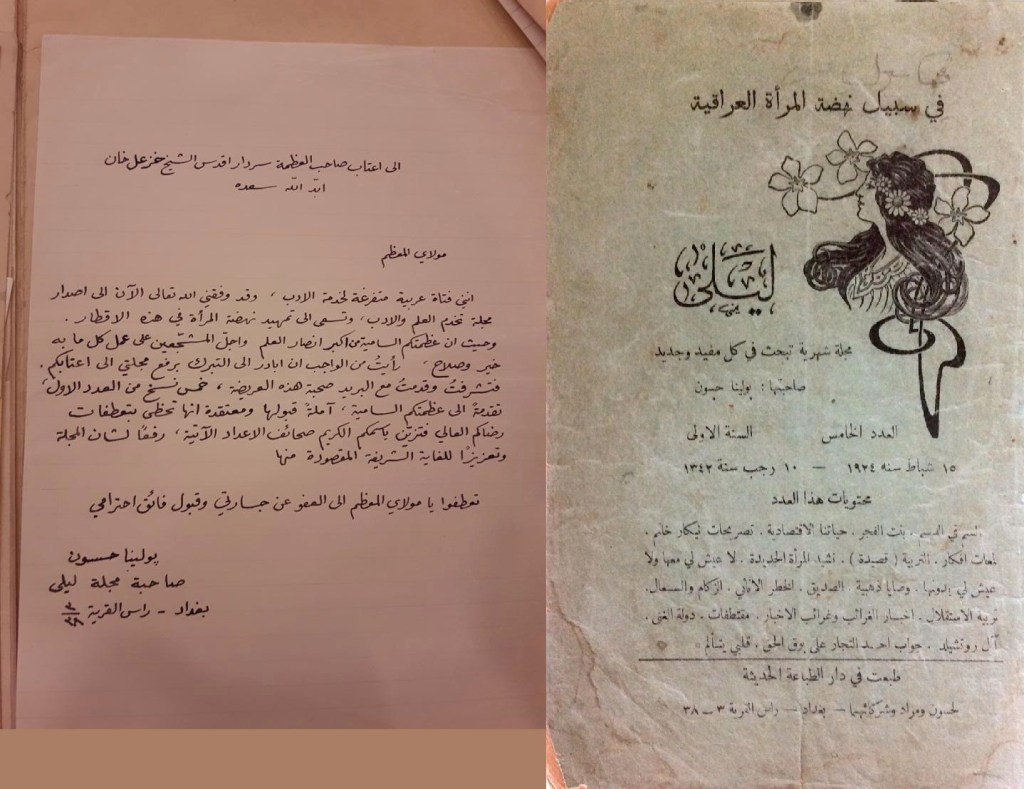 الى اعتاب صاحب العظمة سردار اقدس الشيخ خزعل خان
ايّد الله سعده
مولاي المعظم
انني فتاة عربية متفرغة لخدمة الادب ، وقد وفقني الله تعالى الآن الى اصدار
مجلة تخدم العلم والادب ، وتسعى الى تمهيد نهضة المرأة في هذه الاقطار .
وحيث ان عظمتكم السامية من اكبر انصار العلم واجلّ المشجعين على عمل كل ما به
خير وصلاح ، رأيتُ من الواجب ان ابادر الى التبرك برفع مجلتي الى اعتابكم .
فتشرفتُ وقدمتُ مع البريد صحبة هذه العريضة ، خمس نسخ من العدد الاول ،
تقدمة الى عظمتكم السامية ، آملةً قبولها ومعتقدة انها تحظى بتعطفات
رضاكم العالي فتزين باسمكم الكريم صحائف الاعداد الآتية ، رفعًا لشان المجلة
وتعزيزًا للغاية الشريفة المقصودة منها
تعطفوا يا مولاي المعظم الى العفو عن جسارتي وقبول فائق احترامي
پولينا حسون
صاحبة مجلة ليلى
بغداد - راس القرية ٣/٣٨
في سبيل نهضة المرأة العراقية
ليلى
مجلة شهرية تبحث في كل مفيد وجديد
صاحبتها : بولينا حسون
العدد الخامس السنة الاولى
١٥ شباط سنه ١٩٢٤ — ١٠ رجب سنة ١٣٤٢
محتويات هذا العدد
السم في الدسم . بنت الفجر . حياتنا الاقتصادية . تصريحات نيكار خانم .
لمعات افكار . التربية ( قصيدة ) . نشد المرأة الجديدة . لا عيش لي معها ولا
عيش لي بدونها . وصايا ذهبية . الصديق . الخطر الالماني . الزكام والسعال .
تربية الاستقلال . اخبار الغرائب وغرائب الاخبار . مقتطفات . دولة الغنى .
آل روتشيلد . جواب احمد النجار على بوق الحق . قلبي يتألم
طبعت في دار الطباعة الحديثة
لحسون ومراد وشركائهما — بغداد — راس القرية ٣ — ٣٨